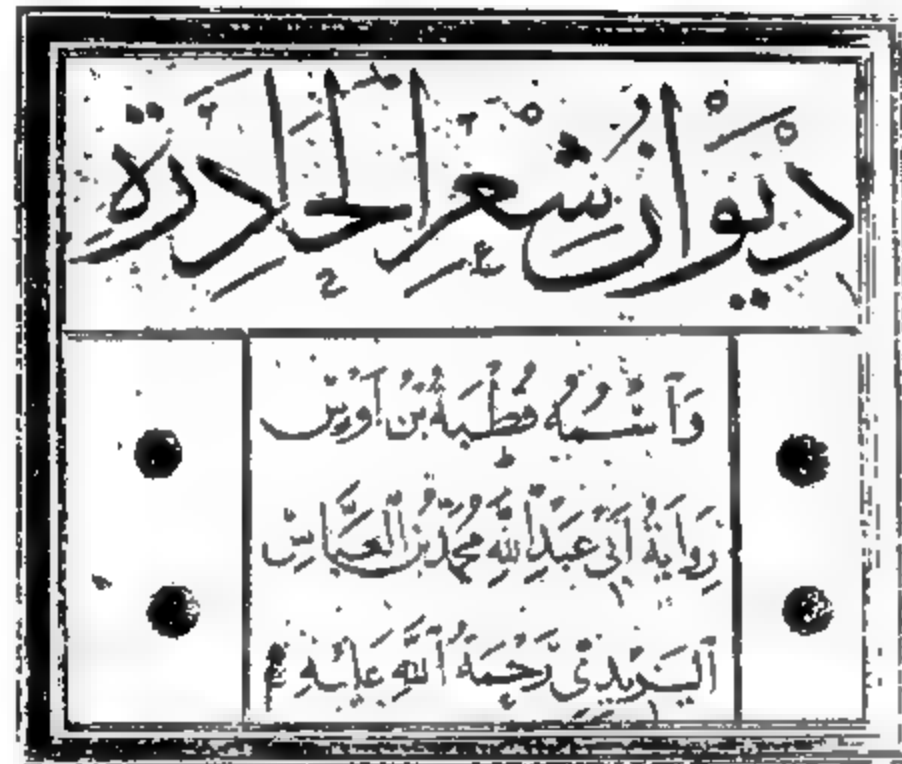 دِيْوَانُ شِعْرِ الْحَادِرَةِ
وَاسْمُهُ قُطْبَةُ بْنُ أَوْسٍ
رِوَايَةُ أَبِي عَبْدِ اللَّهِ مُحَمَّدِ بْنِ الْعَبَّاسِ
الْيَزِيدِيِّ رَحْمَةُ اللَّهِ عَلَيْهِ